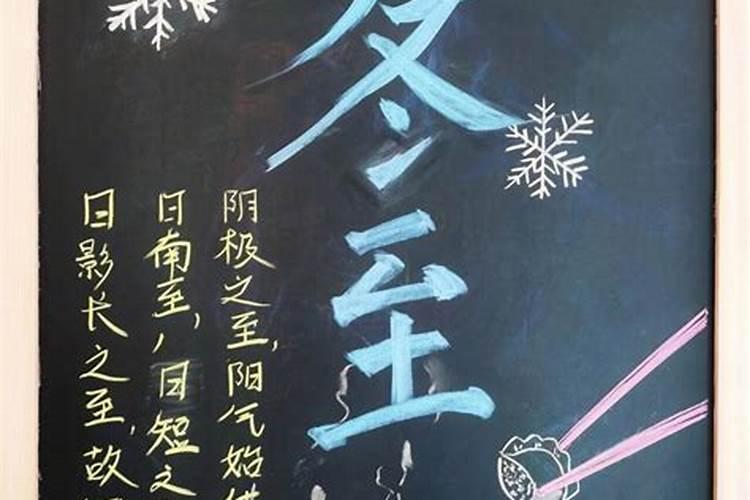 冬至
阴极之至，阳气始
日南至，日短之
日影长之至，故